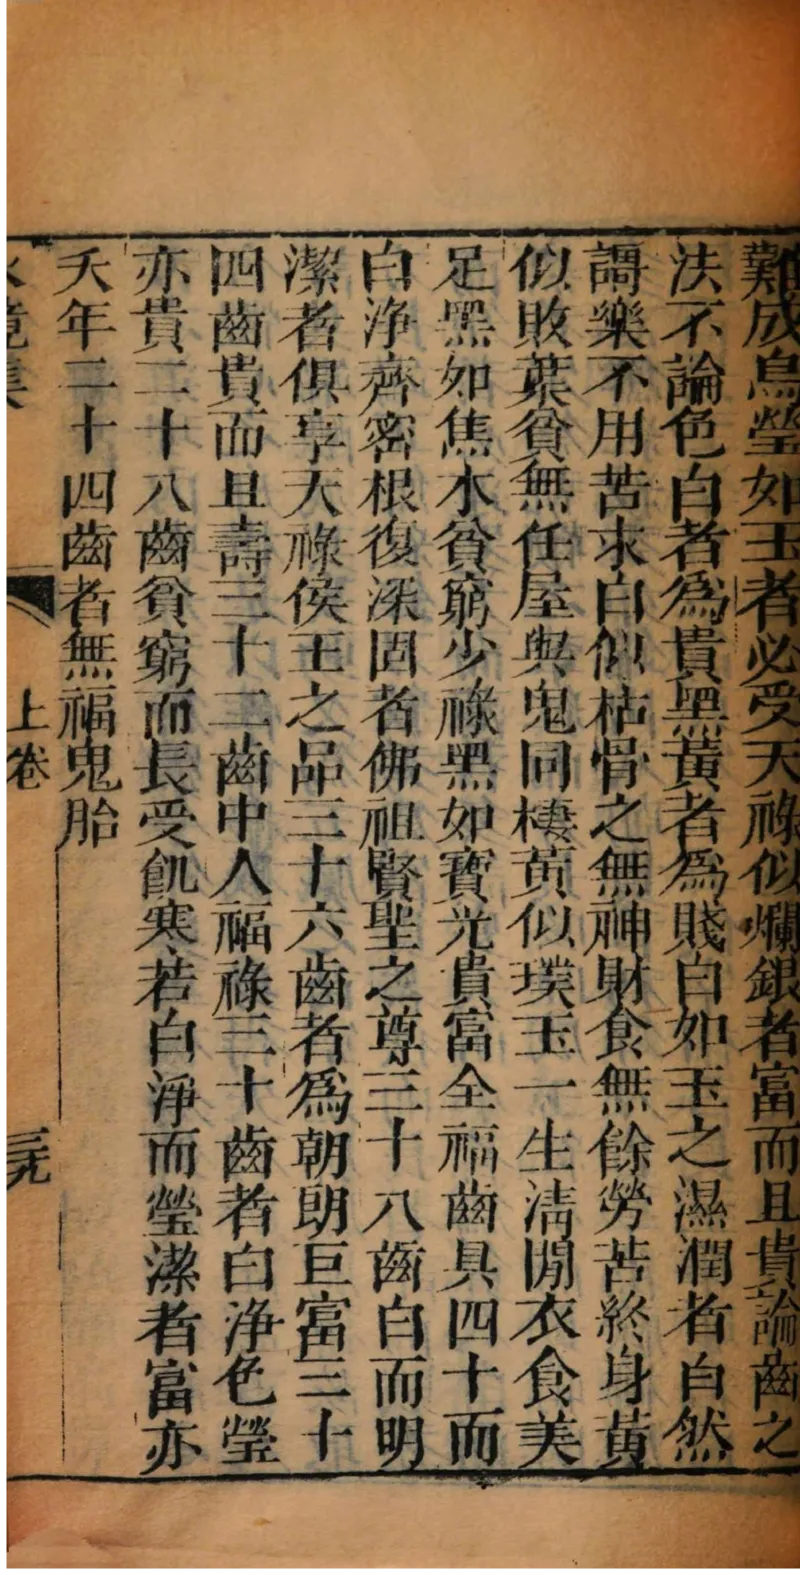 難成烏瑩如玉者必受天祿似爛銀者富而且貴論齒之
法不論色白者爲貴黑黃者爲賤白如玉之濕潤者自然
謌樂不用苦求白似枯骨之無神財食無餘勞苦終身黃
似敗葉貧無任屋與鬼同棲黃似璞玉一生淸閒衣食美
足黑如焦水貧窮少祿黑如寶光貴富全福齒具四十而
白淨齊密根復深固者佛祖賢聖之尊三十八齒白而明
潔者俱享天祿侯王之品三十六齒者爲朝朗巨富三十
四齒貴而且壽三十二齒中人福祿三十齒者白淨色瑩
亦貴二十八齒貧窮而長受飢寒若白淨而瑩潔者富亦
夭年二十四齒者無福鬼胎
鏡集
上卷
三九